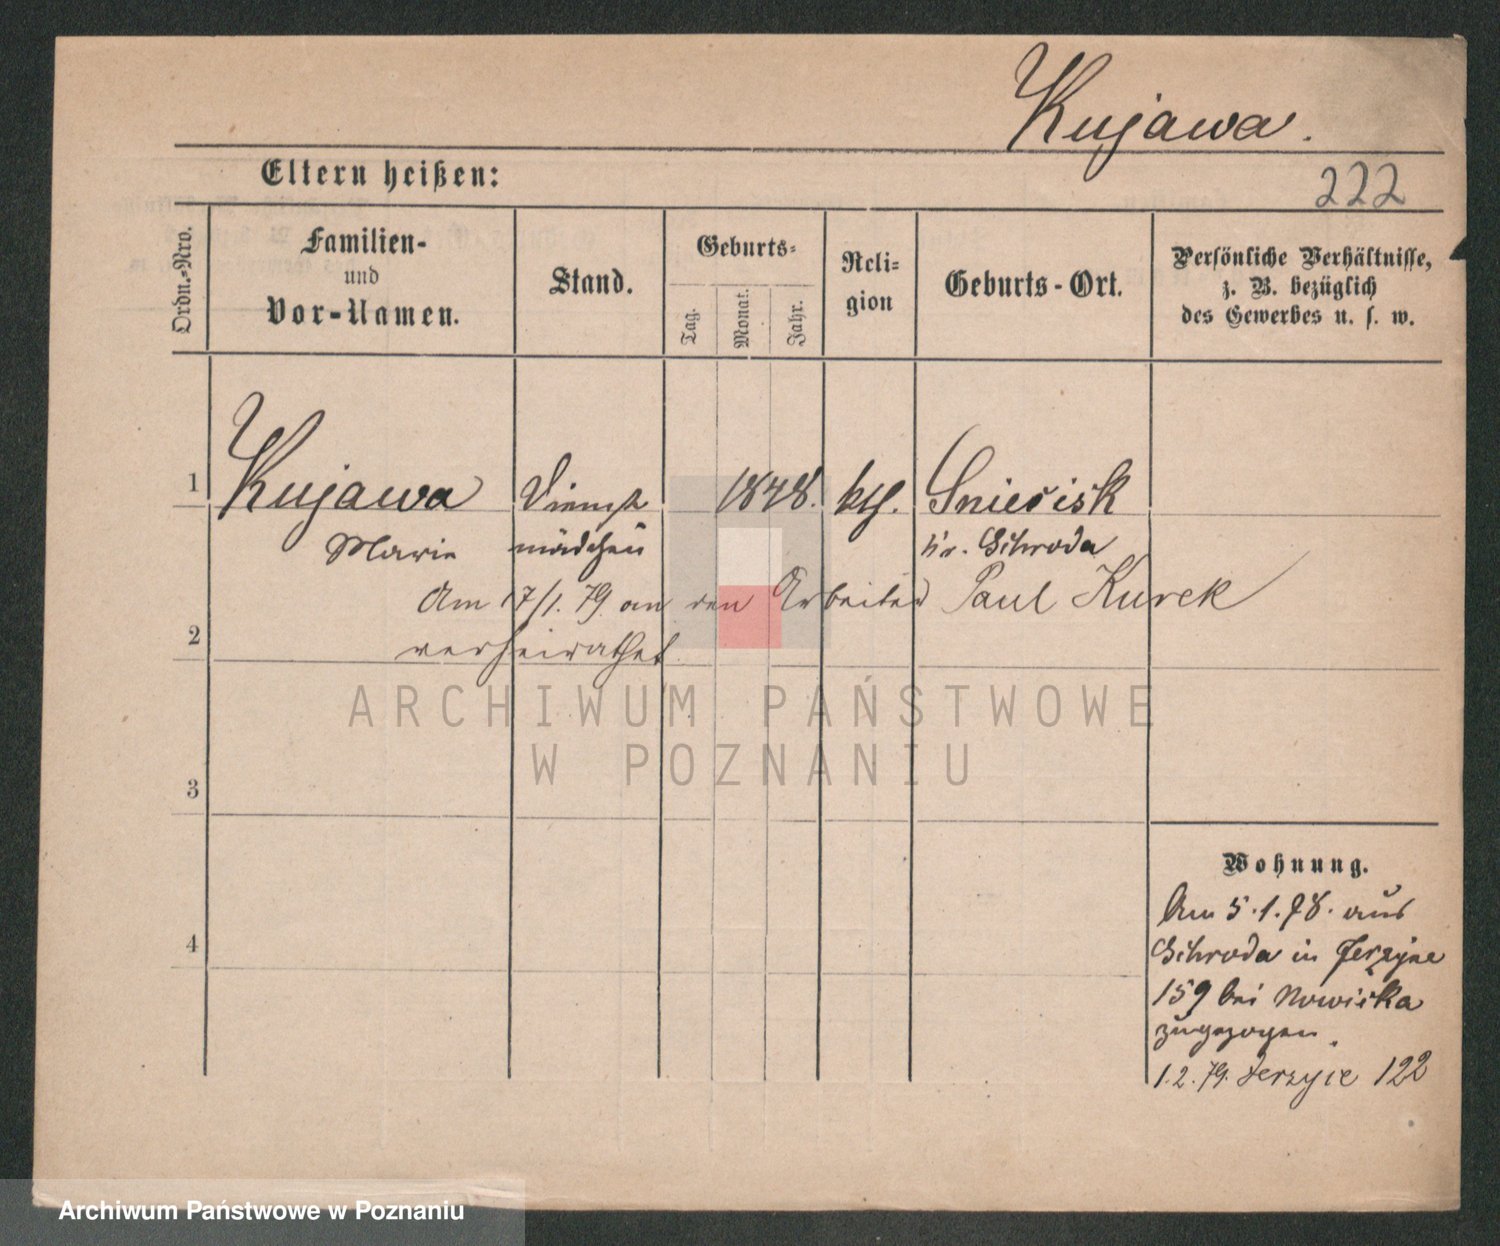 Kujawa.
Eltern heißen:
222
Ordn.-Nro.
Familien-
und
Vor-Namen.
Stand.
Geburts-
Tag.
Monat.
Jahr.
Reli-
gion
Geburts-Ort.
Persönliche Verhältnisse,
z. B. bezüglich
des Gewerbes u. s. w.
1
Kujawa Dienst 1848. kth. Sniecisk
Marie mädchen Kr. Schroda
Am 17/1. 79 an den Arbeiter Paul Kurek
2
verheirathet.
ARCHIWUM PAŃSTWOWE
W POZNANIU
3
Wohnung.
Am 5.1.78. aus
4
Schroda in Jerzyce
159 bei Nowicka
zugezogen.
1.2.79. Jerzyce 122
Archiwum Państwowe w Poznaniu